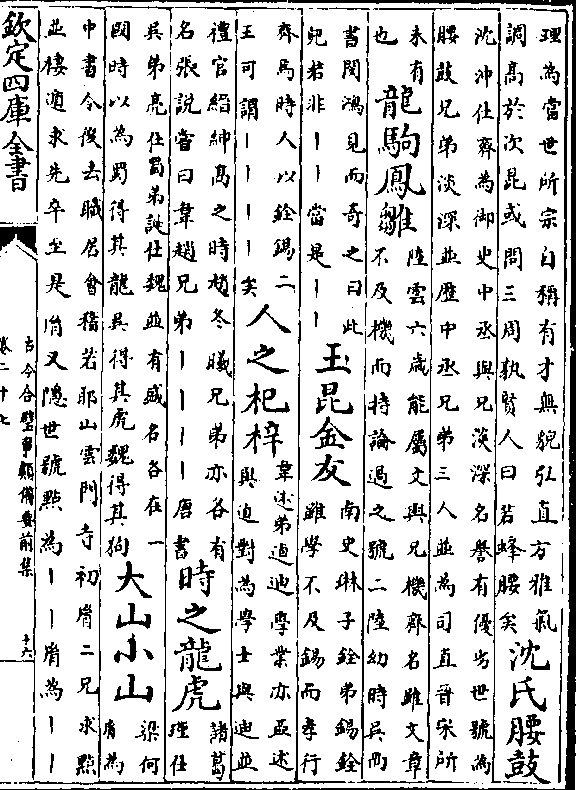 理為當世所宗自稱有才無貌弘直方雅氣
調高於次昆或問三周孰賢人曰若蜂腰矣
沈氏腰鼓
沈沖仕齊為御史中丞與兄淡深名譽有優劣世號為
腰鼓兄弟淡深並歷中丞兄弟三人並為司直晉宋所
未有
也
龍駒鳳雛
陸雲六歲能屬文與兄機齊名雖文章
不及機而持論過之號二陸幼時吳尚
書閔鴻見而奇之曰此
兒若非丨丨當是丨丨
玉昆金友
南史琳子銓弟錫銓
雖學不及錫而孝行
齊焉時人以銓錫二
王可謂丨丨丨丨矣
人之杞梓
韋述弟逌迪學業亦亞述
與逌對為學士與迪並
禮官縉紳高之時趙冬曦兄弟亦各有
名張說嘗曰韋趙兄弟丨丨丨丨唐書
時之龍虎
諸葛
瑾仕
吳弟亮仕蜀弟誕仕魏並有盛名各在一
國時以為蜀得其龍吳得其虎魏得其狗
大山小山
梁何
胤為
中書令後去職居會稽若耶山雲門寺初胤二兄求點
並棲遁求先卒至是胤又隱世號點為丨丨胤為丨丨
欽定四庫全書
古今合璧事類備要前集
卷二十七
十六